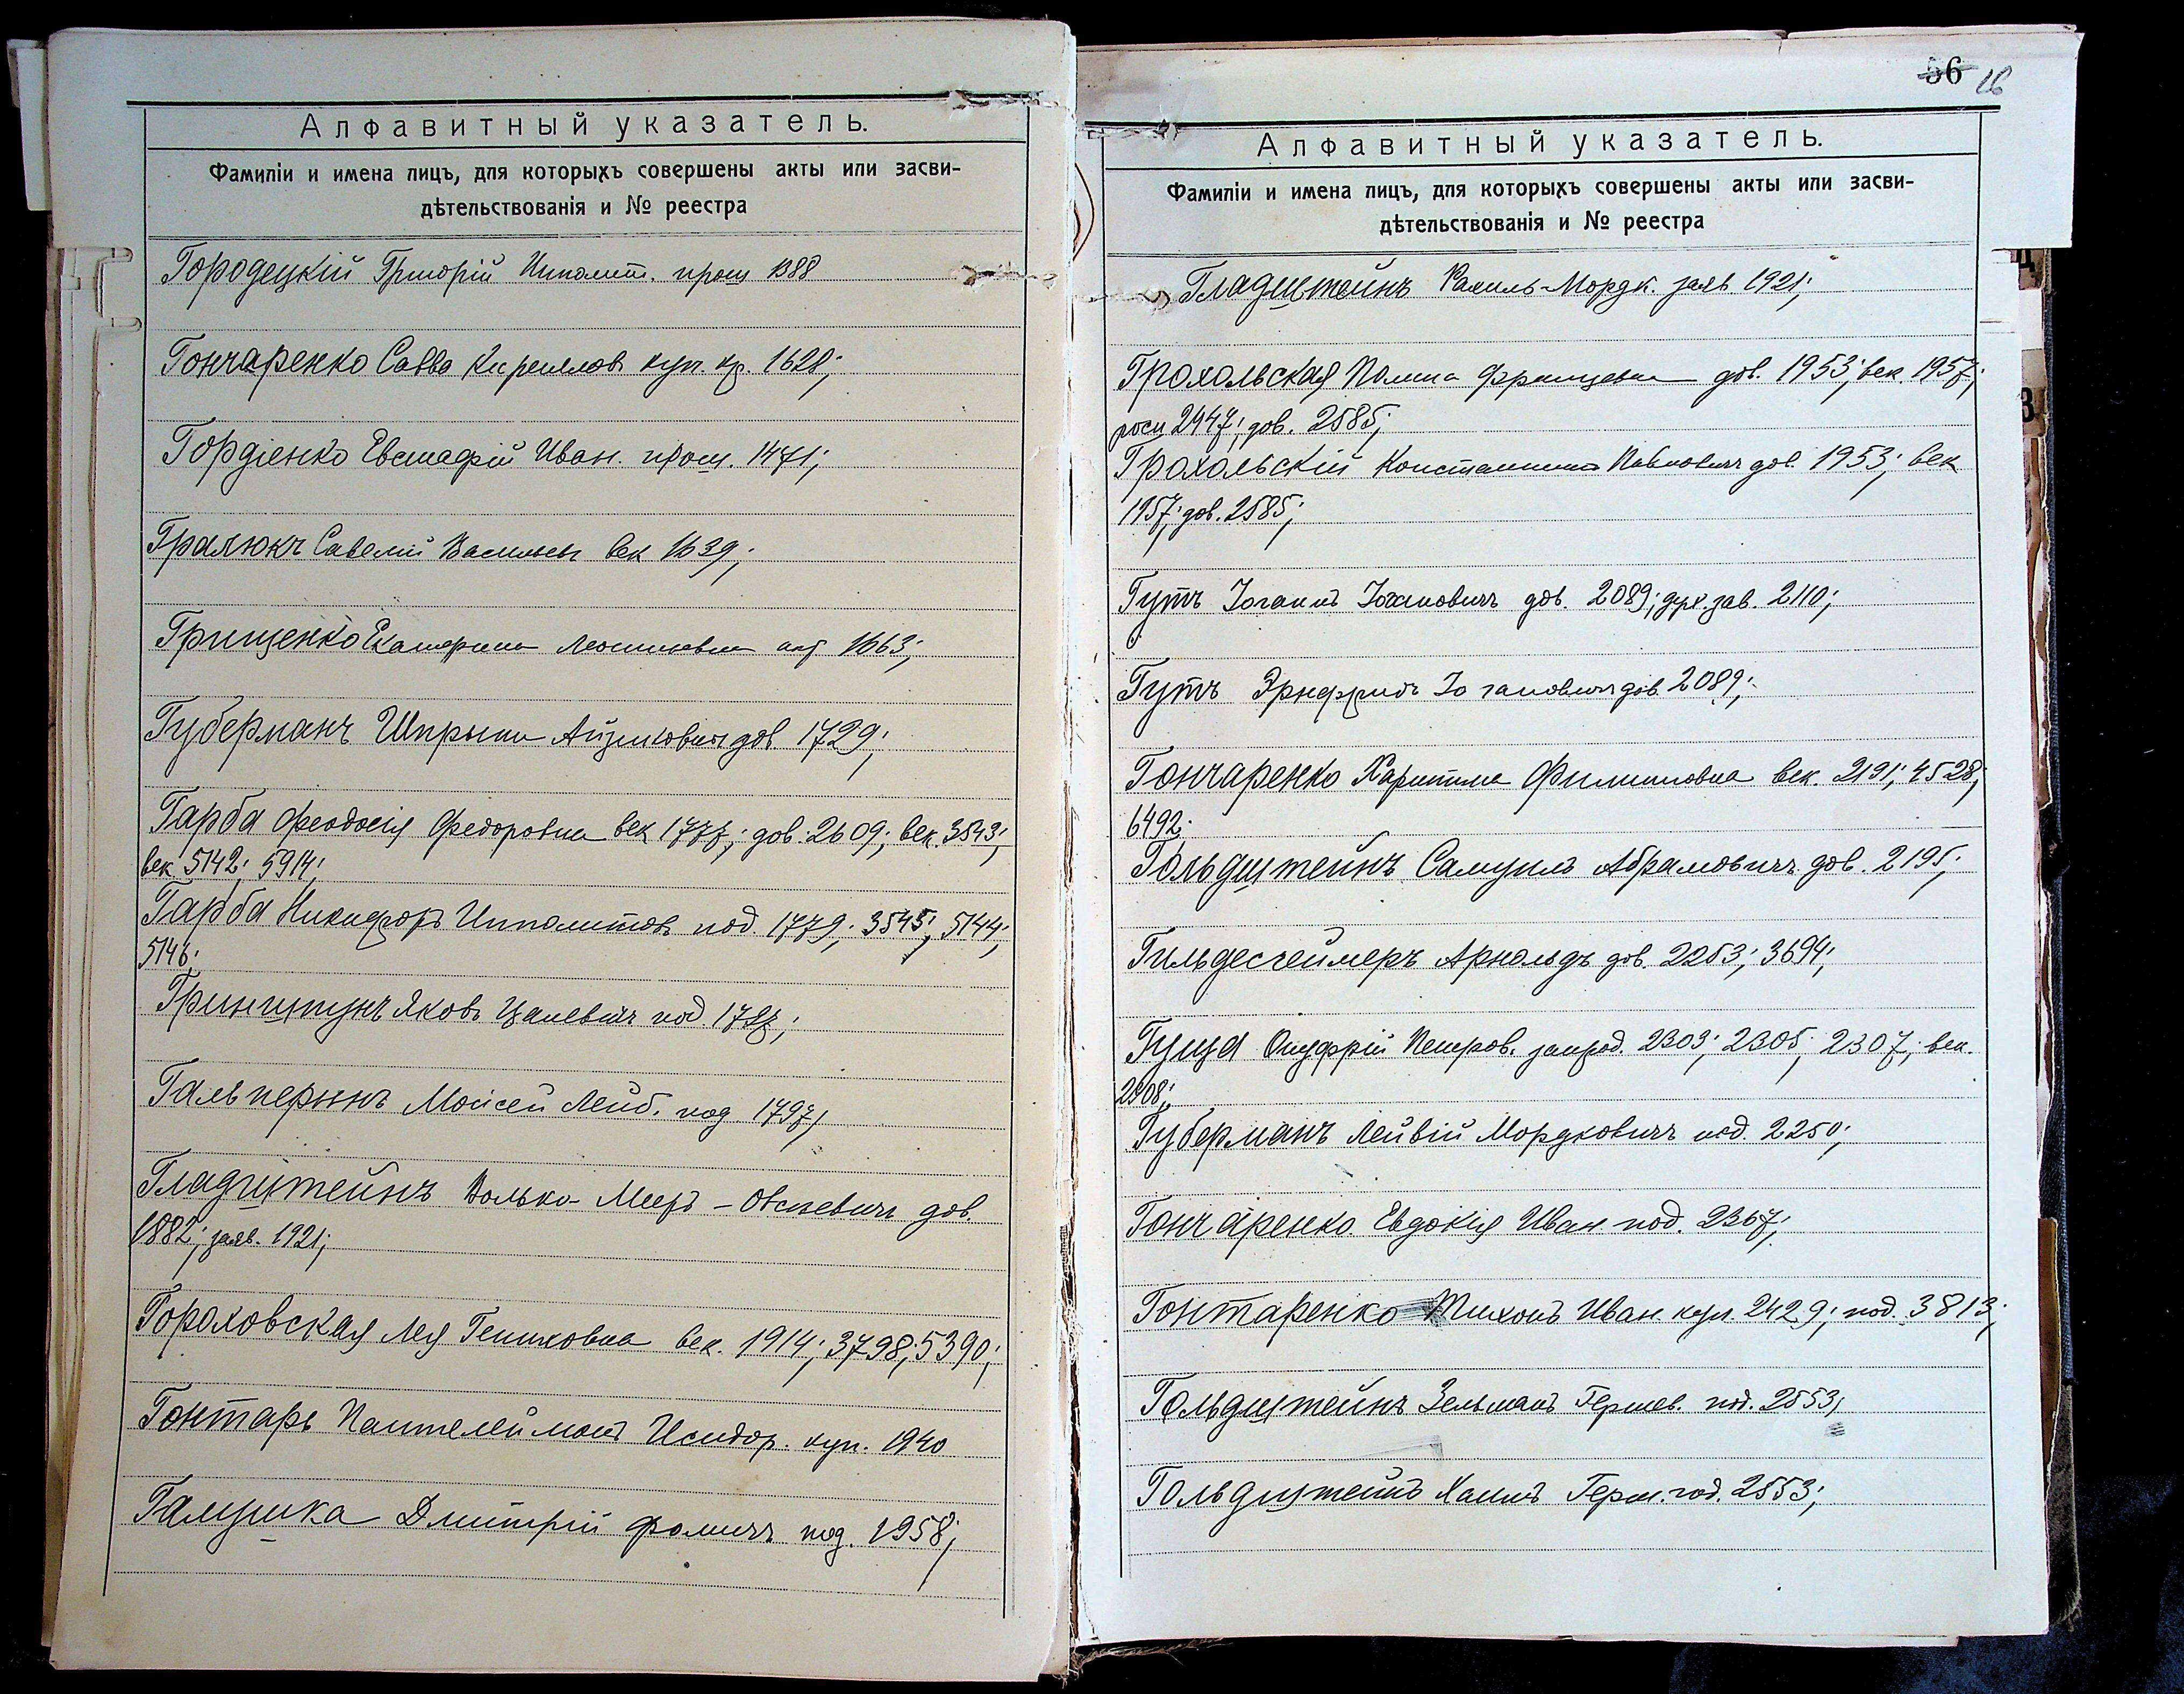 Алфавитный указатель.
Фамиліи и имена лицъ, для которыхъ совершены акты или засви-
дѣтельствованія и № реестра
Городецкій Григорій Ипполит. прош 1388
Гончаренко Савва Кириллов куп. кр. 1628;
Гордіенко Евстафій Иван. прош. 1471;
Гралюкъ Савелій Васильев век 1639;
Грищенко Екатерина акт 1663;
Губерманъ Шпрынца Айзиковна дов. 1729;
Гарба Феодосія Федоровна век 1777; дов. 2609; век. 3543;
век. 5142; 5914;
Гарба Никифоръ Ипполитов под. 1779; 3545; 5144;
5146;
Гринштунъ Яковъ под. 1787;
Гальперинъ Моисей Лейб. под. 1797;
Гладштейнъ Волько-Меер-Овсеевичъ дов.
1882; заяв. 1921;
Гороховская Лея Гениховна век. 1914; 3798; 5390;
Гонтарь Пантелеймонъ Исидор. куп. 1940
Галушка Дмитрій Фомичъ под. 1958;
56 26
Алфавитный указатель.
Фамиліи и имена лицъ, для которыхъ совершены акты или засви-
дѣтельствованія и № реестра
Гладштейнъ Рахиль-Мордк. заяв. 1921;
Грохольская Полина Францевна дов. 1953; век. 1957;
росп 2447; дов. 2585;
Грохольскій Константинъ Павловичъ дов. 1953; век
1957; дов. 2585;
Гутъ Іоганъ Іогановичъ дов. 2089; дух. зав. 2110;
Гутъ Эрнфридъ Іогановичъ дов. 2089;
Гончаренко Харитина Филипповна век. 2191; 4528;
6492;
Гольдштейнъ Самуилъ Абрамовичъ дов. 2195;
Гильдесгеймеръ Арнольдъ дов. 2253; 3694;
Гуща Онуфрій Петров. запрод. 2303; 2305; 2307; век.
2308;
Губерманъ Лейвій Мордковичъ под. 2250;
Гончаренко Евдокія Иван. под. 2367;
Гонтаренко Тихонъ Иван. куп. 2429; под. 3813;
Гольдштейнъ Зельманъ Гершев. под. 2553;
Гольдштейнъ Хаимъ Герш. под. 2553;